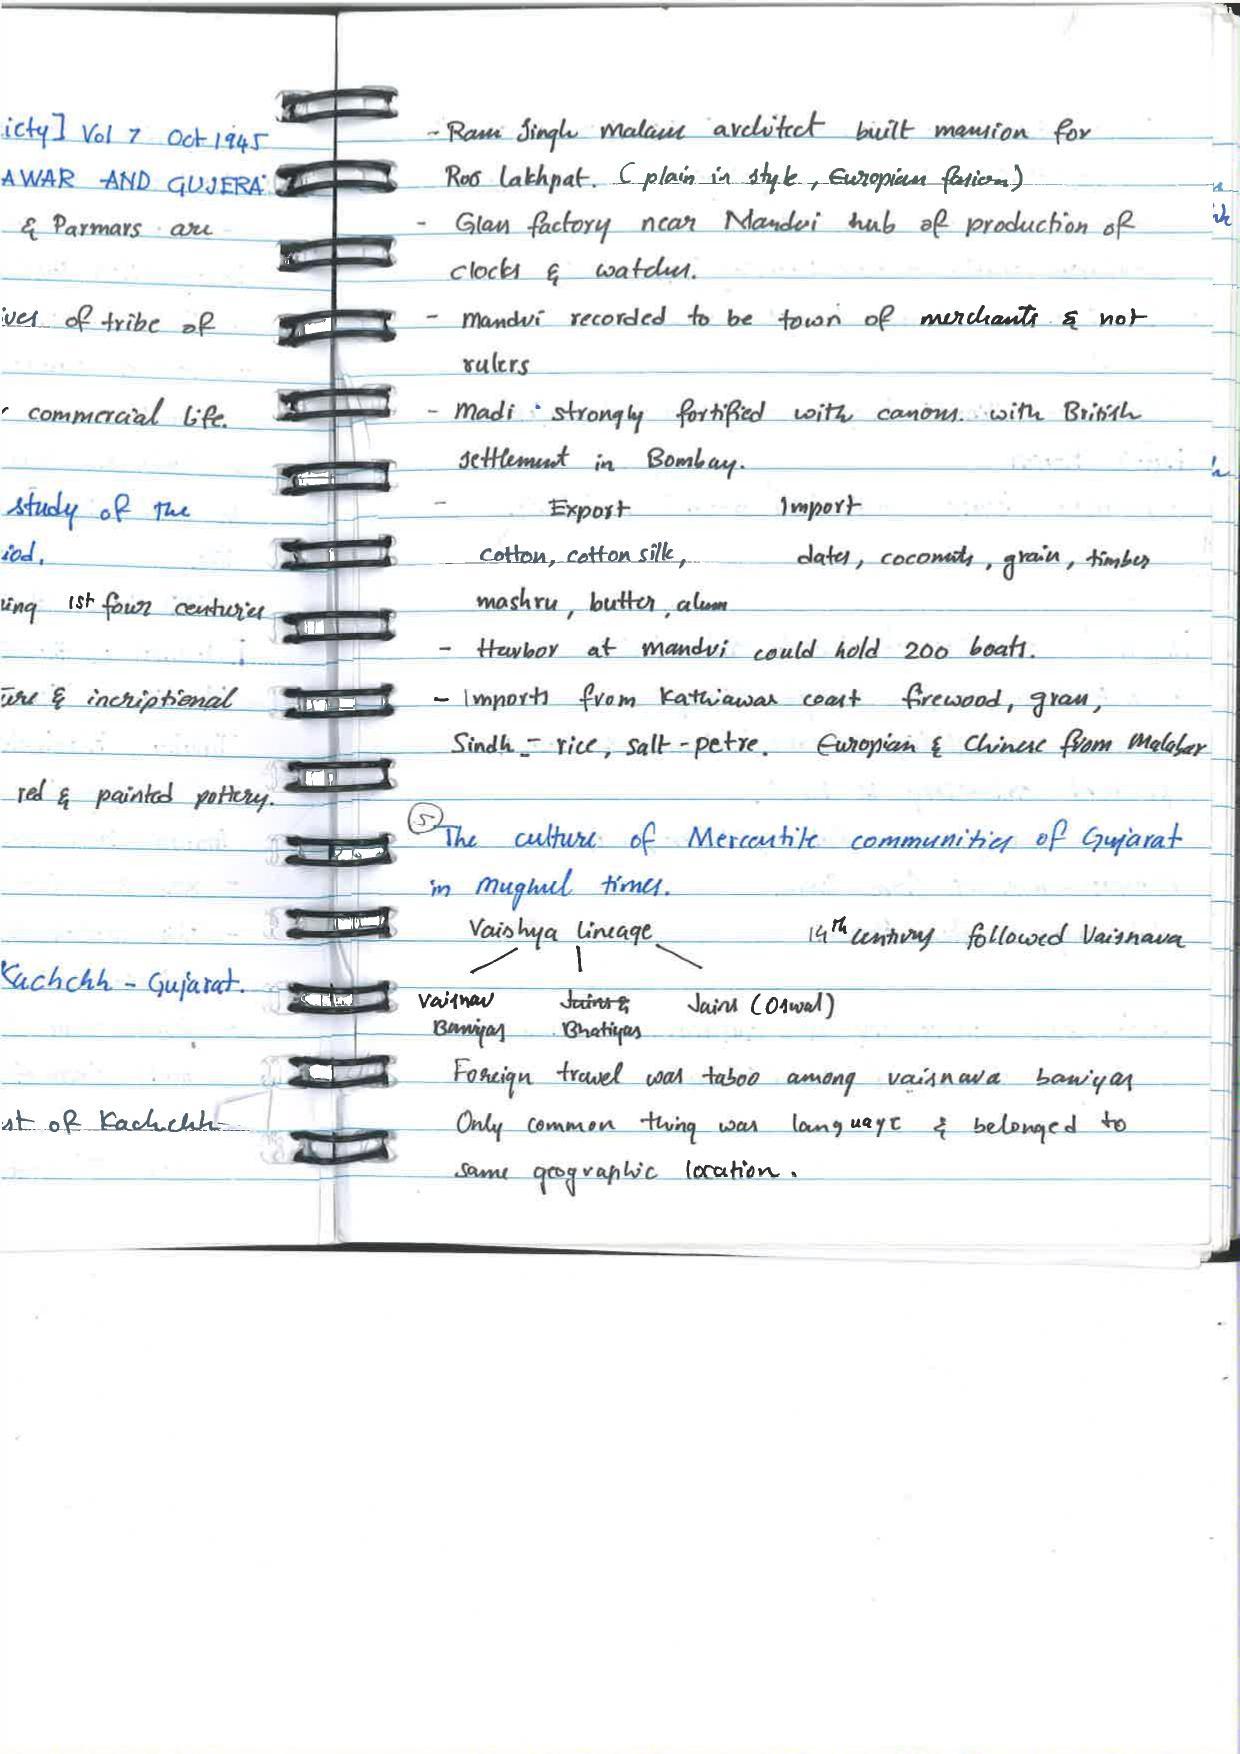 icty] Vol 7 Oct 1945
AWAR AND GUJERA
& Parmars are
ives of tribe of
commercial life.
study of the
iod.
ing 1st four centuries
ure & incriptional
red & painted pottery.
Kachchh - Gujarat.
st of Kachchh
- Ram Singh Malam architect built mansion for
Rao Lakhpat. (plain in style, Europian fasion)
- Glass factory near Mandvi hub of production of
clocks & watches.
- Mandvi recorded to be town of merchants & not
rulers
- Madi strongly fortified with canons. with British
settlement in Bombay.
- Export Import
cotton, cotton silk, dates, coconuts, grain, timber
mashru, butter, alum
- Harbor at mandvi could hold 200 boats.
- Imports from Kathiawar coast firewood, gran,
Sindh - rice, salt-petre. Europian & Chinese from Malabar
5 The culture of Mercantile communities of Gujarat
in mughul times.
Vaishya lineage 14th century followed Vaisnava
Vaisnav Jains & Jains (Oswal)
Baniyas Bhatiyas
Foreign travel was taboo among vaisnava baniyas
Only common thing was language & belonged to
same geographic location.